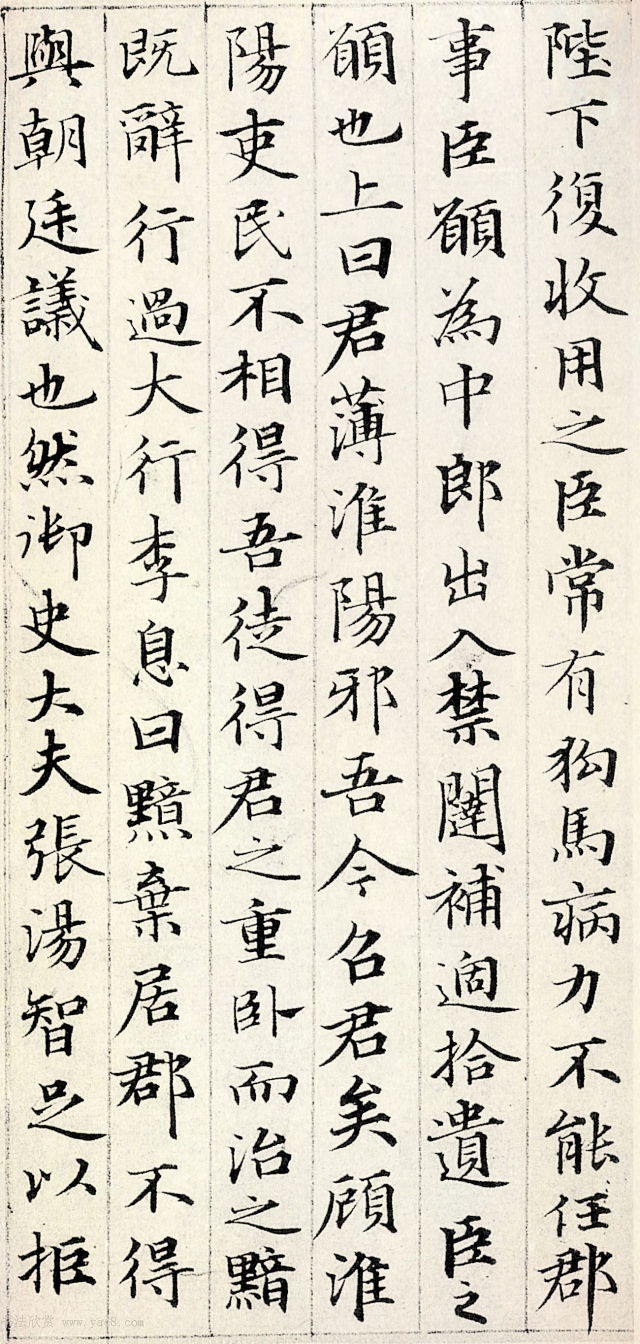 陛下復收用之臣常有狗馬病力不能任郡
事臣願為中郎出入禁闥補過拾遺臣之
願也上曰君薄淮陽邪吾今召君矣顧淮
陽吏民不相得吾徒得君之重臥而治之黯
既辭行過大行李息曰黯棄居郡不得
與朝廷議也然御史大夫張湯智足以拒
法欣赏 www.yac8.com